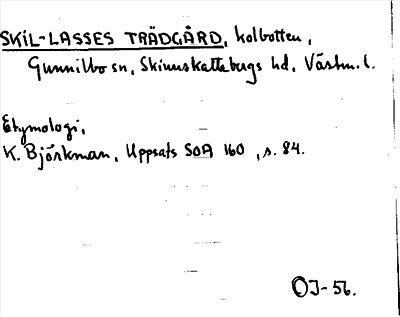 SKIL-LASSES TRÄDGÅRD, kolbotten,
Gunnilbo sn, Skinnskattebergs hd, Västm. l.
Etymologi,
K. Björkman, Uppsats SOA 160, s. 84.
OJ-56.